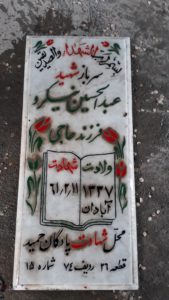 سرباز شهید
عبدالحسین نیکرو
فرزند حاجی
ولادت
۱۳۳۷
آبادان
شهادت
۶۱/۲/۱۱
محل شهادت پادگان حمید
قطعه ۲۶ ردیف ۷۴ شماره ۱۵